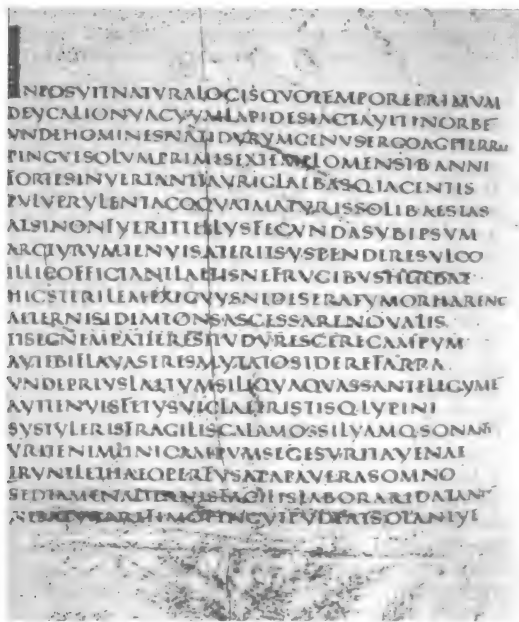 INPOSVITNATVRALOCISQVOTEMPOREPRIMVM
DEVCALIONVACVVMLAPIDESIACTAVITINORBE
VNDEHOMINESNATIDVRVMGENVSERGOAGETERRAE
PINGVESOLVMPRIMISEXTEMPLOMENSIB·ANNI
FORTESINVERTANTTAVRIGLAEBASQ·IACENTIS
PVLVERVLENTACOQVATMATVRISSOLIB·AESTAS
ATSINONFVERITTELLVSFECVNDASVBIPSVM
ARCTVRVMTENVISATERITSVSPENDERESVLCO
ILLICOFFICIANTLAETISNEFRVGIBVSHERBAE
HICSTERILEMEXIGVVSNEDESERATVMORHARENC
ALTERNISIDEMTONSASCESSARENOVALIS
ETSEGNEMPATIERESITVDVRESCERECAMPVM
AVTIBIFLAVASERISMVTATOSIDEREFARRA
VNDEPRIVSLAETVMSILIQVAQVASSANTELEGVME
AVTTENVISFETVSVICIAETRISTISQ·LVPINI
SVSTVLERISFRAGILISCALAMOSSILVAMQ·SONANT
VRITENIMLINICAMPVMSEGESVRITAVENAE
VRVNTLETHAEOPERFVSAPAPAVERASOMNO
SEDTAMENALTERNISFACILISLABORARIDATANT
NESATVRAREFIMOPINGVIPVDEATSOLANEVE